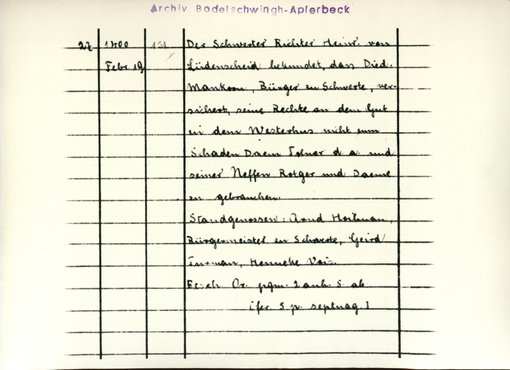 Archiv Bodelschwingh-Aplerbeck
27 1400 121 Der Schwerter Richter Heinr. von
Febr. 19 Lüdenscheid bekundet, dass Died.
Mankorn, Bürger zu Schwerte, ver-
sichert, seine Rechte an dem Gut
in dem Westerhus nicht zum
Schaden Daem Tolner d. a. und
seiner Neffen Rotger und Daeme
zu gebrauchen.
Standgenossen: Arnd Hortman,
Bürgermeister zu Schwerte, Gerd
Henneke Vois.
Or. pgm. 2 anh. S. ab
(fer. 5 p. septuag.)